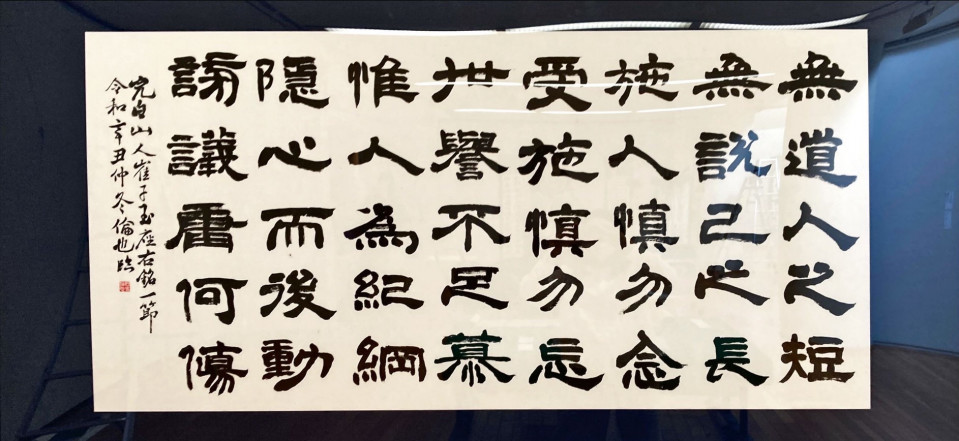 無道人之短
無說己之長
施人慎勿念
受施慎勿忘
世譽不足慕
惟人為紀綱
隱心而後動
謗議庸何傷
完白山人崔子玉座右銘一節
令和辛丑仲冬倫也臨